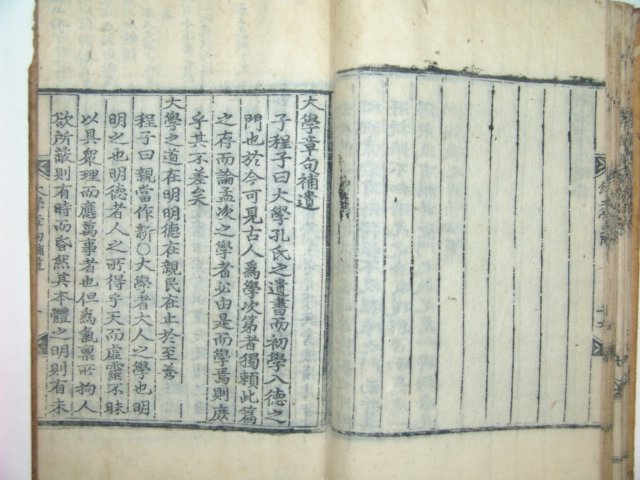 大學章句補遺
子程子曰大學孔氏之遺書而初學入德之
門也於今可見古人爲學次第者獨賴此篇
之存而論孟次之學者必由是而學焉則庶
乎其不差矣
大學之道在明明德在親民在止於至善
程子曰親當作新○大學者大人之學也明
明之也明德者人之所得乎天而虛靈不昧
以具衆理而應萬事者也但爲氣稟所拘人
欲所蔽則有時而昏然其本體之明則有未
大學章句補遺